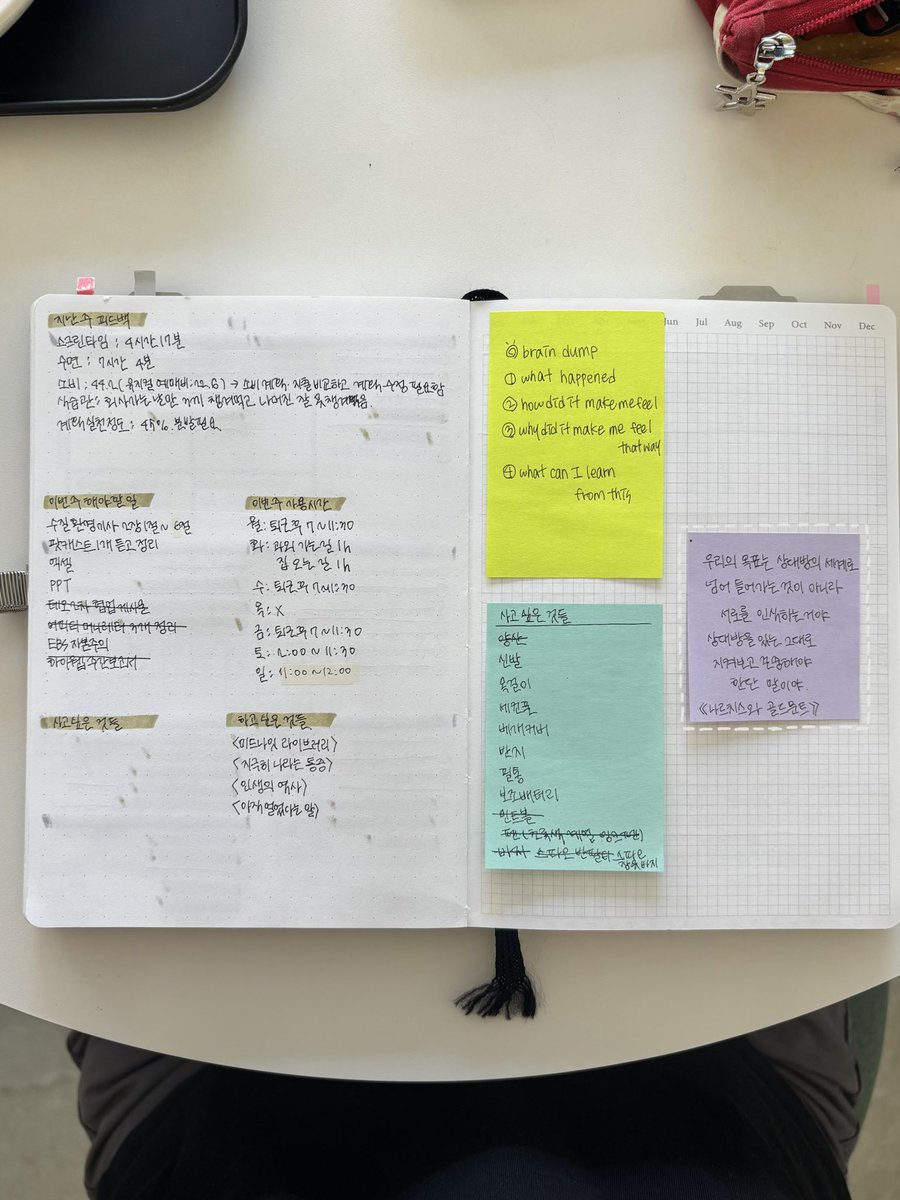 지난주 피드백
스크린타임 : 4시간 17분
수면 : 7시간 4분
소비 : 44.2 (뮤지컬 예매비:22.6) → 소비계획, 지출 비교하고 계획 수정 필요함
식습관: 회사가는 날만 3끼 챙겨먹고 나머진 잘 못챙겨먹음
계획실천정도 : 45% 분발필요
이번주 해야할 일
수질환경기사 2강 1절~6절
팟캐스트 1개 듣고 정리
엑셀
PPT
EBS 자본주의
이번주 가용시간
월: 퇴근 후 7~11:30
화: 과외 가는 길 1h
집 오는 길 1h
수: 퇴근 후 7~11:30
목: X
금: 퇴근 후 7~11:30
토: 2:00 ~ 11:30
일: 11:00 ~ 12:00
사고싶은 것들
하고싶은 것들
<미드나잇 라이브러리>
<지극히 나라는 통증>
<인생의 역사>
brain dump
① what happened
② how did it make me feel
③ why did it make me feel
that way
④ what can I learn
from this
사고싶은 것들
양산
신발
목걸이
베개커버
반지
필통
보조배터리
민트볼
바지 스파오 반팔티 스파오
잠옷바지
Jun Jul Aug Sep Oct Nov Dec
우리의 목표는 상대방의 세계로
넘어 들어가는 것이 아니라
서로를 인식하는 거야
상대방을 있는 그대로
지켜보고 존중해야
한단 말이야.
《나르치스와 골드문트》